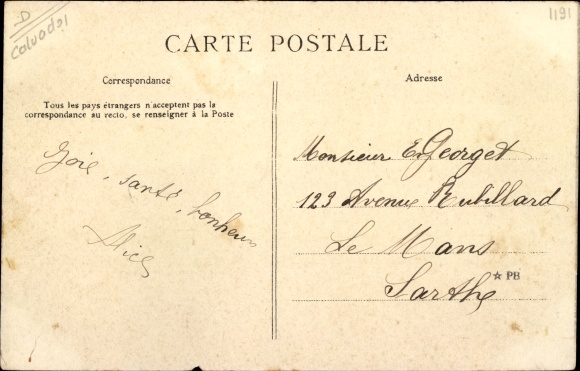 D
Calvados
1191
CARTE POSTALE
Correspondance
Adresse
Tous les pays étrangers n'acceptent pas la
correspondance au recto, se renseigner à la Poste
Joie, santé, bonheur
Alice
Monsieur E. Georget
123 Avenue Rubillard
Le Mans
Sarthe
☆ PB